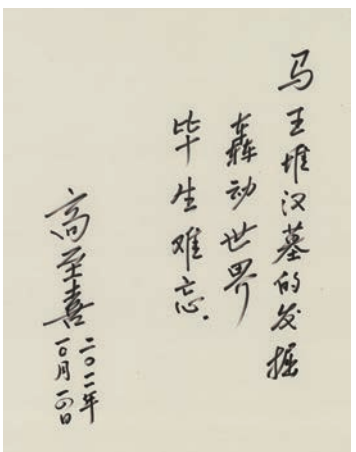 马王堆汉墓的发掘
轰动世界
毕生难忘.
高至喜
二〇一一年
一〇月一四日